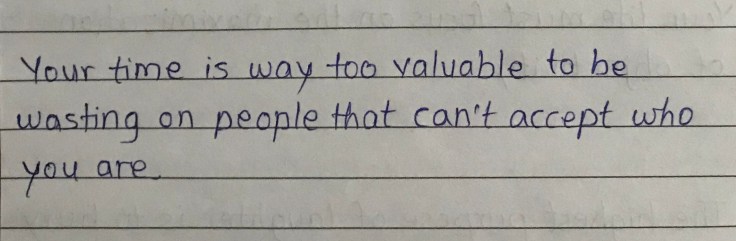 Your time is way too valuable to be
wasting on people that can't accept who
you are.